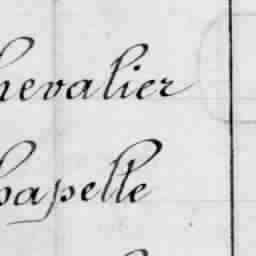 hevalier
hapelle